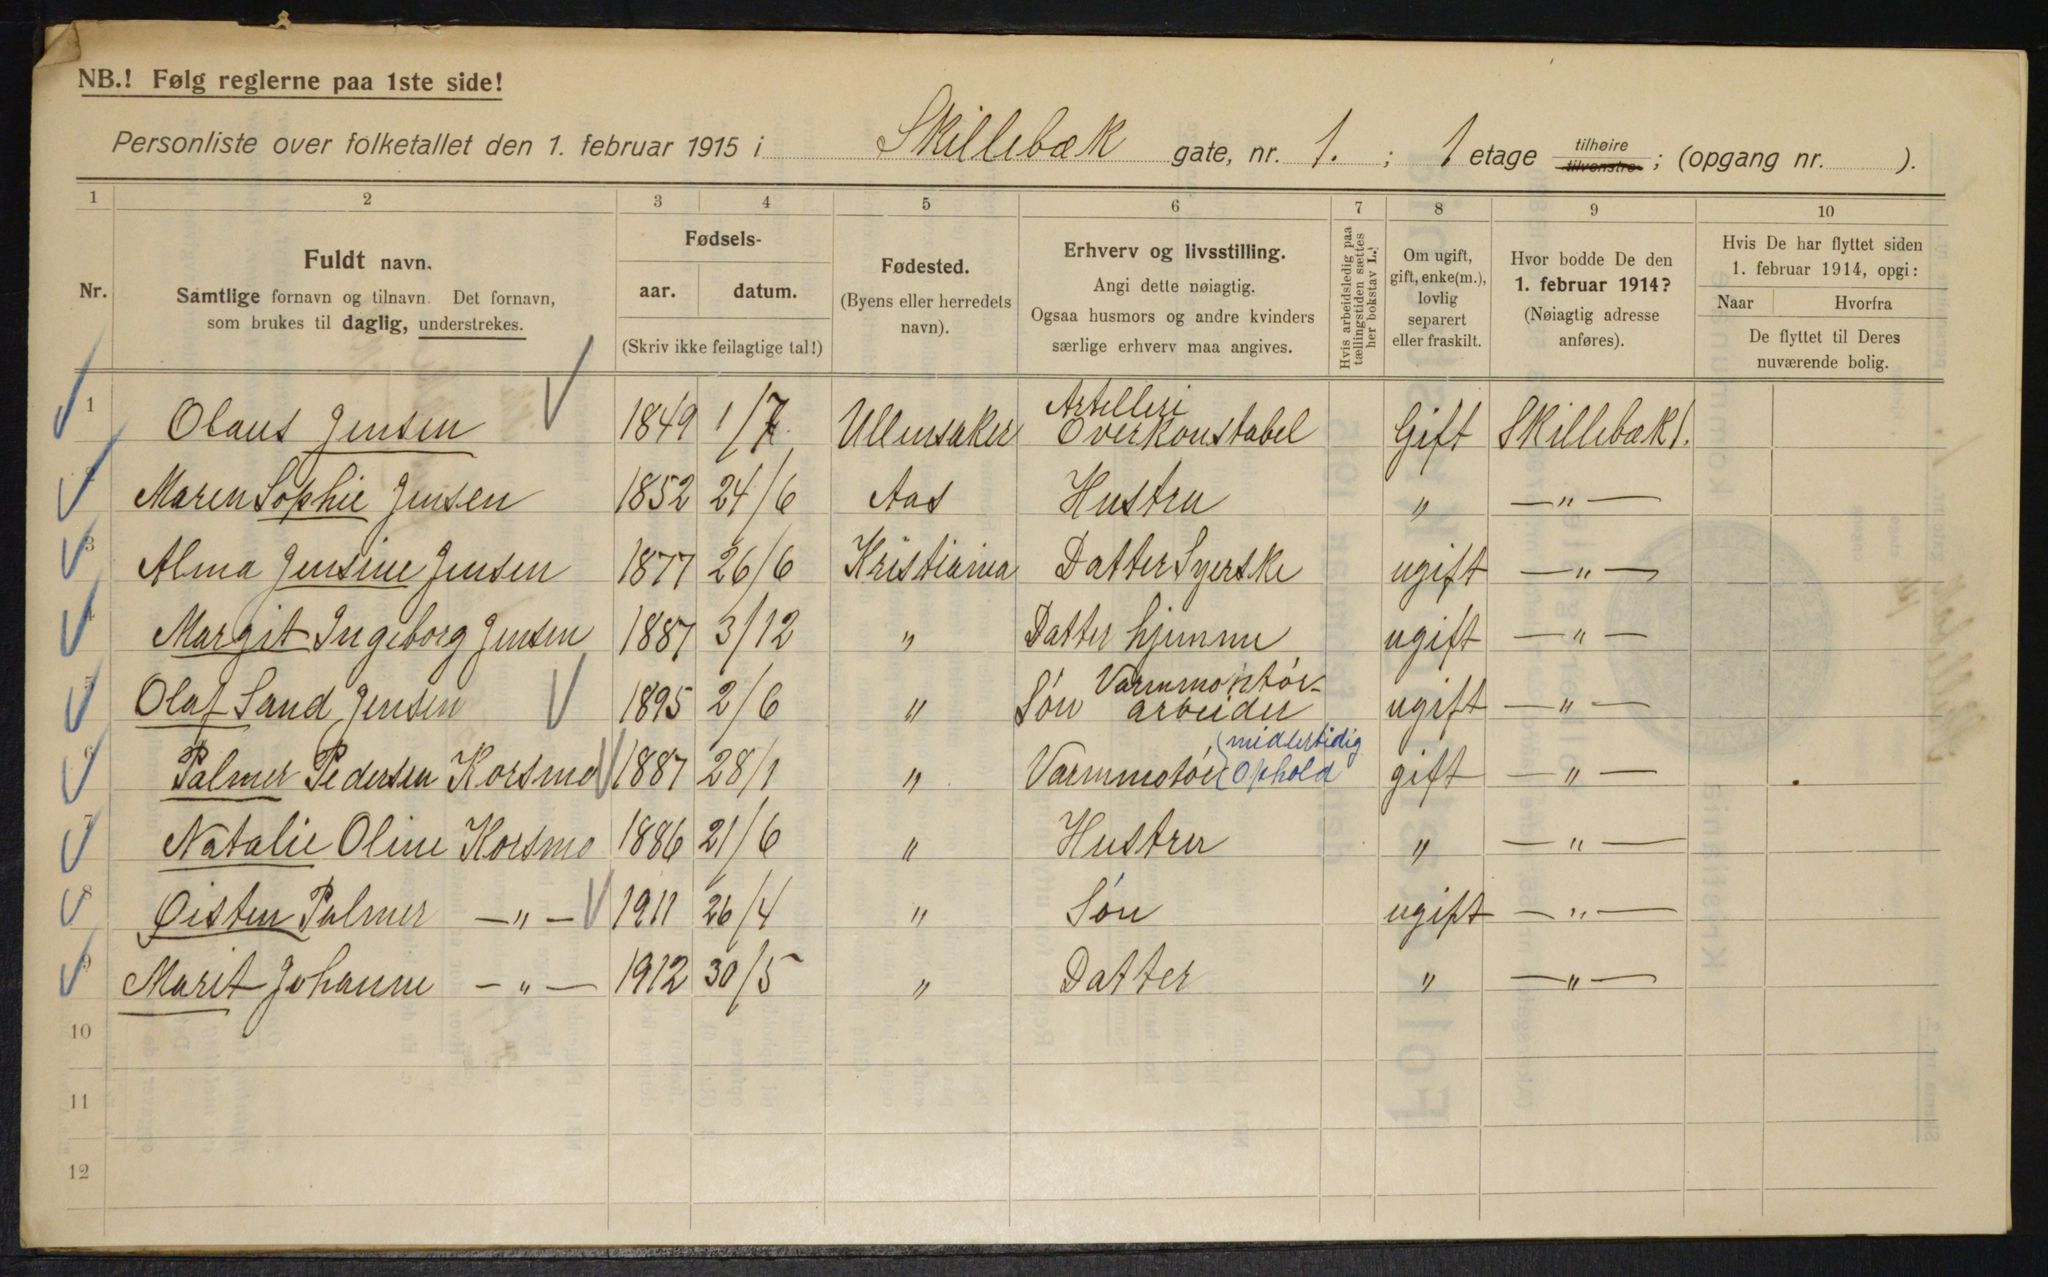 NB.! Følg reglerne paa 1ste side!
Personliste over folketallet den 1. februar 1915 i Skillebæk gate, nr. 1. ; 1 etage tilhøire tilvenstre ; (opgang nr. ).
1 2 3 4 5 6 7 8 9 10
Nr.
Fuldt navn.
Samtlige fornavn og tilnavn. Det fornavn,
som brukes til daglig, understrekes.
Fødsels-
aar. datum.
(Skriv ikke feilagtige tal!)
Fødested.
(Byens eller herredets
navn).
Erhverv og livsstilling.
Angi dette nøiagtig.
Ogsaa husmors og andre kvinders
særlige erhverv maa angives.
Hvis arbeidsledig paa
tællingstiden sættes
her bokstav L.!
Om ugift,
gift, enke(m.),
lovlig
separert
eller fraskilt.
Hvor bodde De den
1. februar 1914?
(Nøiagtig adresse
anføres).
Hvis De har flyttet siden
1. februar 1914, opgi:
Naar Hvorfra
De flyttet til Deres
nuværende bolig.
1 Olaus Jensen 1849 1/7 Ullensaker Artilleri Overkonstabel Gift Skillebæk 1.
2 Maren Sophie Jensen 1852 24/6 Aas Hustru " — " —
3 Alma Jensine Jensen 1877 26/6 Kristiania Datter Syerske ugift — " —
4 Margit Ingeborg Jensen 1887 3/12 " Datter hjemme ugift — " —
5 Olaf Sand Jensen 1895 2/6 " Søn Varmmontør- arbeider ugift — " —
6 Palmer Pedersen Korsmo 1887 28/1 " Varmmotør (midlertidig Ophold gift — " —
7 Natalie Oline Korsmo 1886 21/6 " Hustru " — " —
8 Øisten Palmer — " — 1911 26/4 " Søn ugift — " —
9 Marit Johanne — " — 1912 30/5 " Datter " — " —
10
11
12